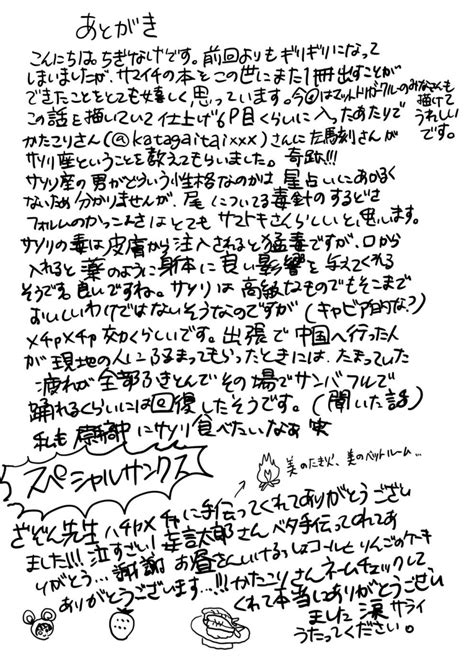 あとがき
こんにちは。ちぎなげです。前回よりもギリギリになって
しまいましたが、サマイチの本をこの世にまた1冊出すことが
できたことをとても嬉しく思っています。今回はマッドトリガークルのみなさんも
描けて
うれしい
です。
この話を描いていて仕上げ6P目くらいに入ったあたりで
かたこりさん(@katagaitaixxx)さんに左馬刻さんが
サソリ座ということを教えてもらいました。奇跡!!!
サソリ座の男がどういう性格なのかは星占いにあかるく
ないため分かりませんが、尾についてる毒針のするどさ
フォルムのかっこよさはとてもサマトキさんらしいと思います。
サソリの毒は皮膚から注入されると猛毒ですが、口から
入れると薬のように身体に良い影響を与えてくれる
そうです。良いですね。サソリは高級なものでもそこまで
おいしいわけではないそうなのですが(キャビア的な?)
メチャメチャ効くらしいです。出張で中国へ行った人
が現地の人にふるまってもらったときには、たまっていた
疲れが全部ふきとんでその場でサンバフルで
踊れるくらいには回復したそうです。(聞いた話)
私も原稿中にサソリ食べたいなぁ 笑
スペシャルサンクス
美のたき火、美のペットルーム…
ざぞん先生 ハチャメチャに手伝ってくれてありがとうござい
ました!!!泣すごい!幸太郎さんベタ手伝ってくれてあ
りがとう…謝謝 お昼さん いけるっしょコールと りんごのケーキ
ありがとうございます…!!!かたこりさんネームチェックして
くれて本当にありがとうござい
ました 涙 サライ
うたってください。